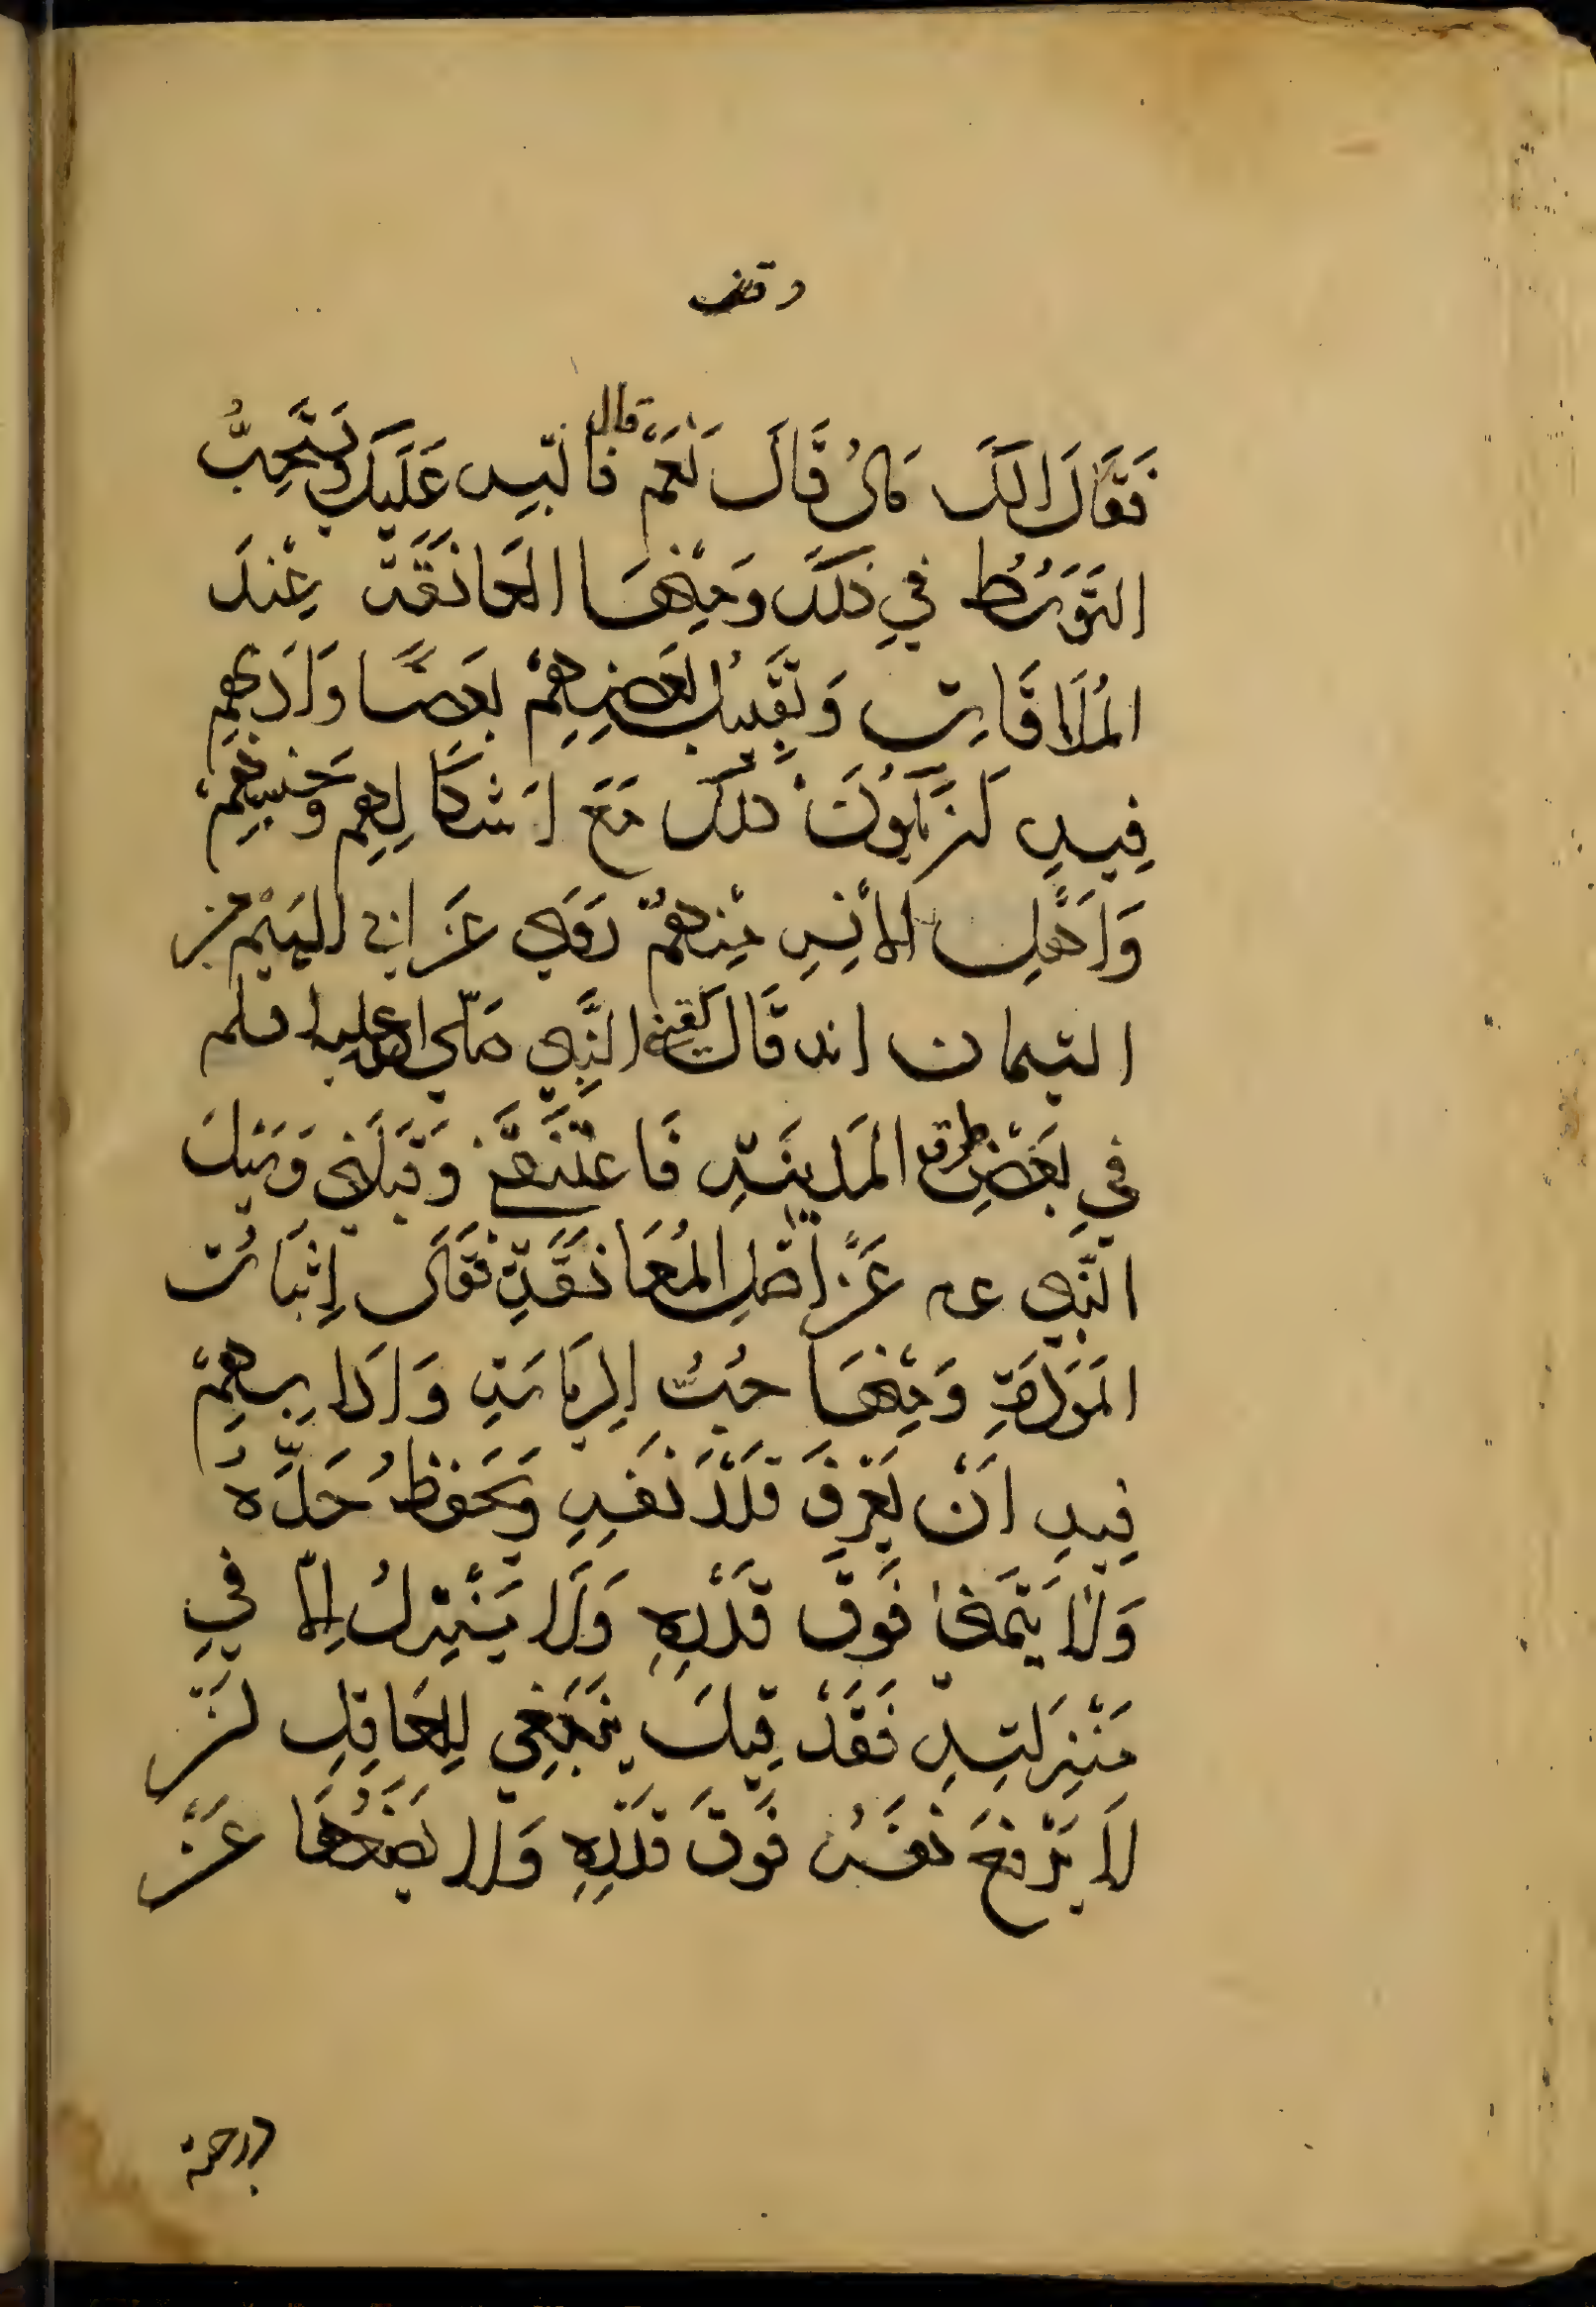 وقف
فَقَالَ الَكَ مَالٌ قَالَ نَعَمْ قال فَالْبِس عَلَيْكَ وَيُسْتَحَبُّ
التَّوَسُّطُ فِي ذَلِكَ وَمِنْهَا المُعَانَقَة عِنْدَ
المُلَاقَاتِ وَتَقْبِيلُ بَعْضِهِمْ بَعضًا وَادَبُهُم
فِيهِ اَنْ يَكُونَ ذلكَ مَعَ اَشْكَالِهِم وَجِنْسِهِمْ
وَاَهْلِ الأُنْسِ مِنْهُمْ رَوَي عَنْ ابي الهَيْثم بن
التيهان انه قَالَ لَقِيَنِي النَّبِي صَلّي الله عليه وسلم
فِي بَعْضِ طرق المَدِينَةِ فَاعْتَنَقَنِي وَقَبَّلَنِي وَسُئِلَ
النَّبِي عـم عَنْ اَصْلِ المُعَانَقَةِ فَقَالَ إِثْبَاتُ
المَوَدَّةِ وَمِنْهَا حُبُّ الرِيَاسَةِ وَادَابُهُمْ
فِيهِ اَنْ يَعْرِفَ قَدْرَ نَفْسِهِ وَيَحْفَظُ حَدَّهُ
وَلَا يَتَمَنَّى فَوْقَ قَدْرِهِ وَلَا يَنْزِلُ اِلَّا فِي
مَنْزِلَتِهِ فَقَدْ قِيلَ يَنْبَغِي لِلعَاقِلِ اَنْ
لَا يَرْفَعَ نَفْسَهُ فَوْقَ قَدْرِهِ وَلَا يَضَعُهَا عَنْ
درجته